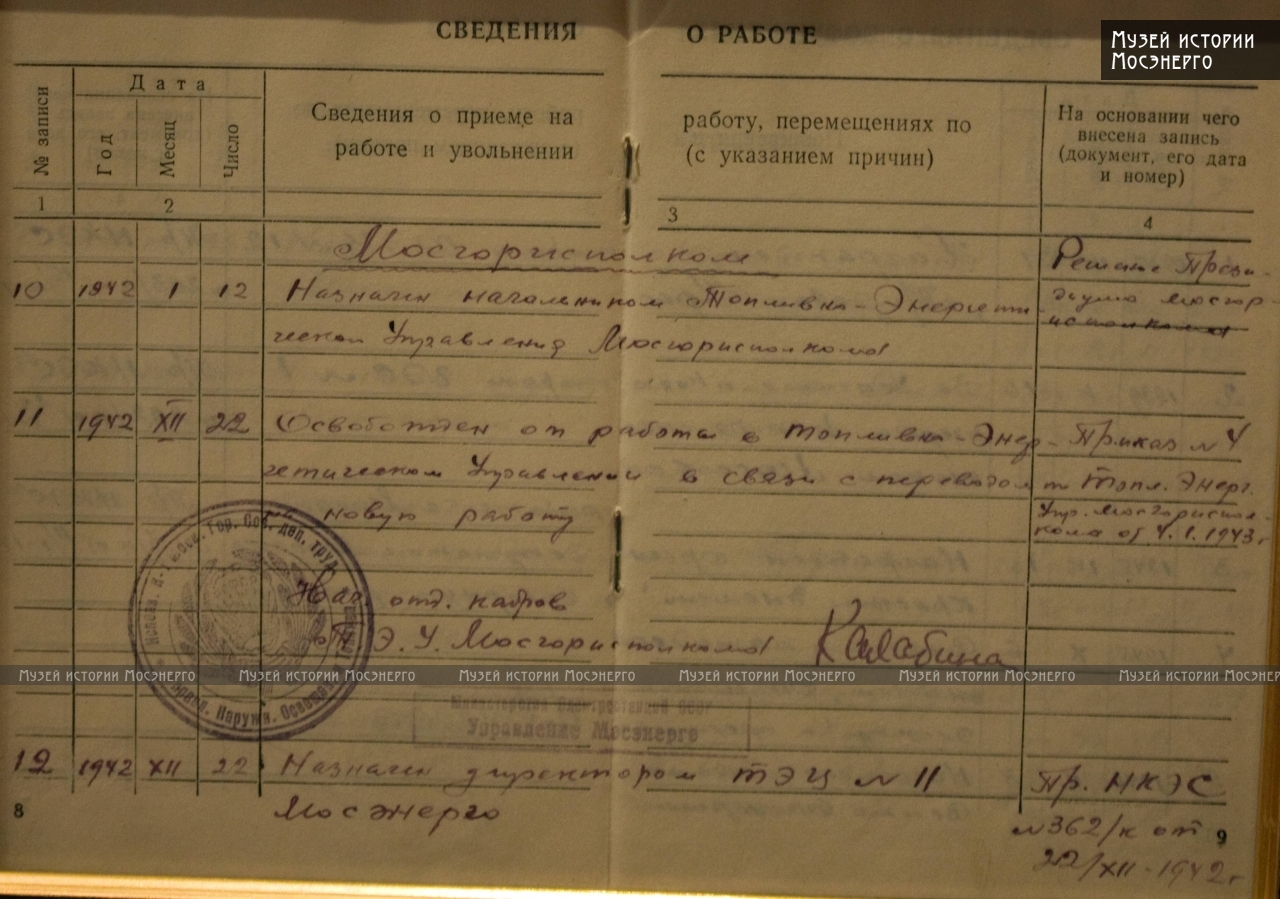 СВЕДЕНИЯ О РАБОТЕ
Музей истории
Мосэнерго
№ записи
Дата
Год
Месяц
Число
Сведения о приеме на работу, перемещениях по
работе и увольнении (с указанием причин)
На основании чего
внесена запись
(документ, его дата
и номер)
1 2 3 4
Мосгорисполком
10 1942 1 12 Назначен начальником Топливно-Энергети
ческого Управления Мосгорисполкома
Решение Прези-
диума Мосгор-
исполкома
11 1942 XII 22 Освобожден от работы в Топливно-Энер-
гетическом Управлении в связи с переводом
на новую работу
Приказ № 4
по Топл. Энерг.
Упр. Мосгориспол-
кома от 4.1.1943 г
Нач. отд. кадров
Т.Э.У. Мосгорисполкома Калабина
Исполн. К-т Мос. Гор. Сов. деп. труд.
Наружн. Освещ.
Музей истории Мосэнерго Музей истории Мосэнерго Музей истории Мосэнерго Музей истории Мосэнерго Музей истории Мосэнерго Музей истории Мосэнерго
Министерство Электростанций СССР
Управление Мосэнерго
12 1942 XII 22 Назначен директором ТЭЦ № 11
Мосэнерго
Пр. НКЭС
№362/к от
22/XII-1942г
8 9